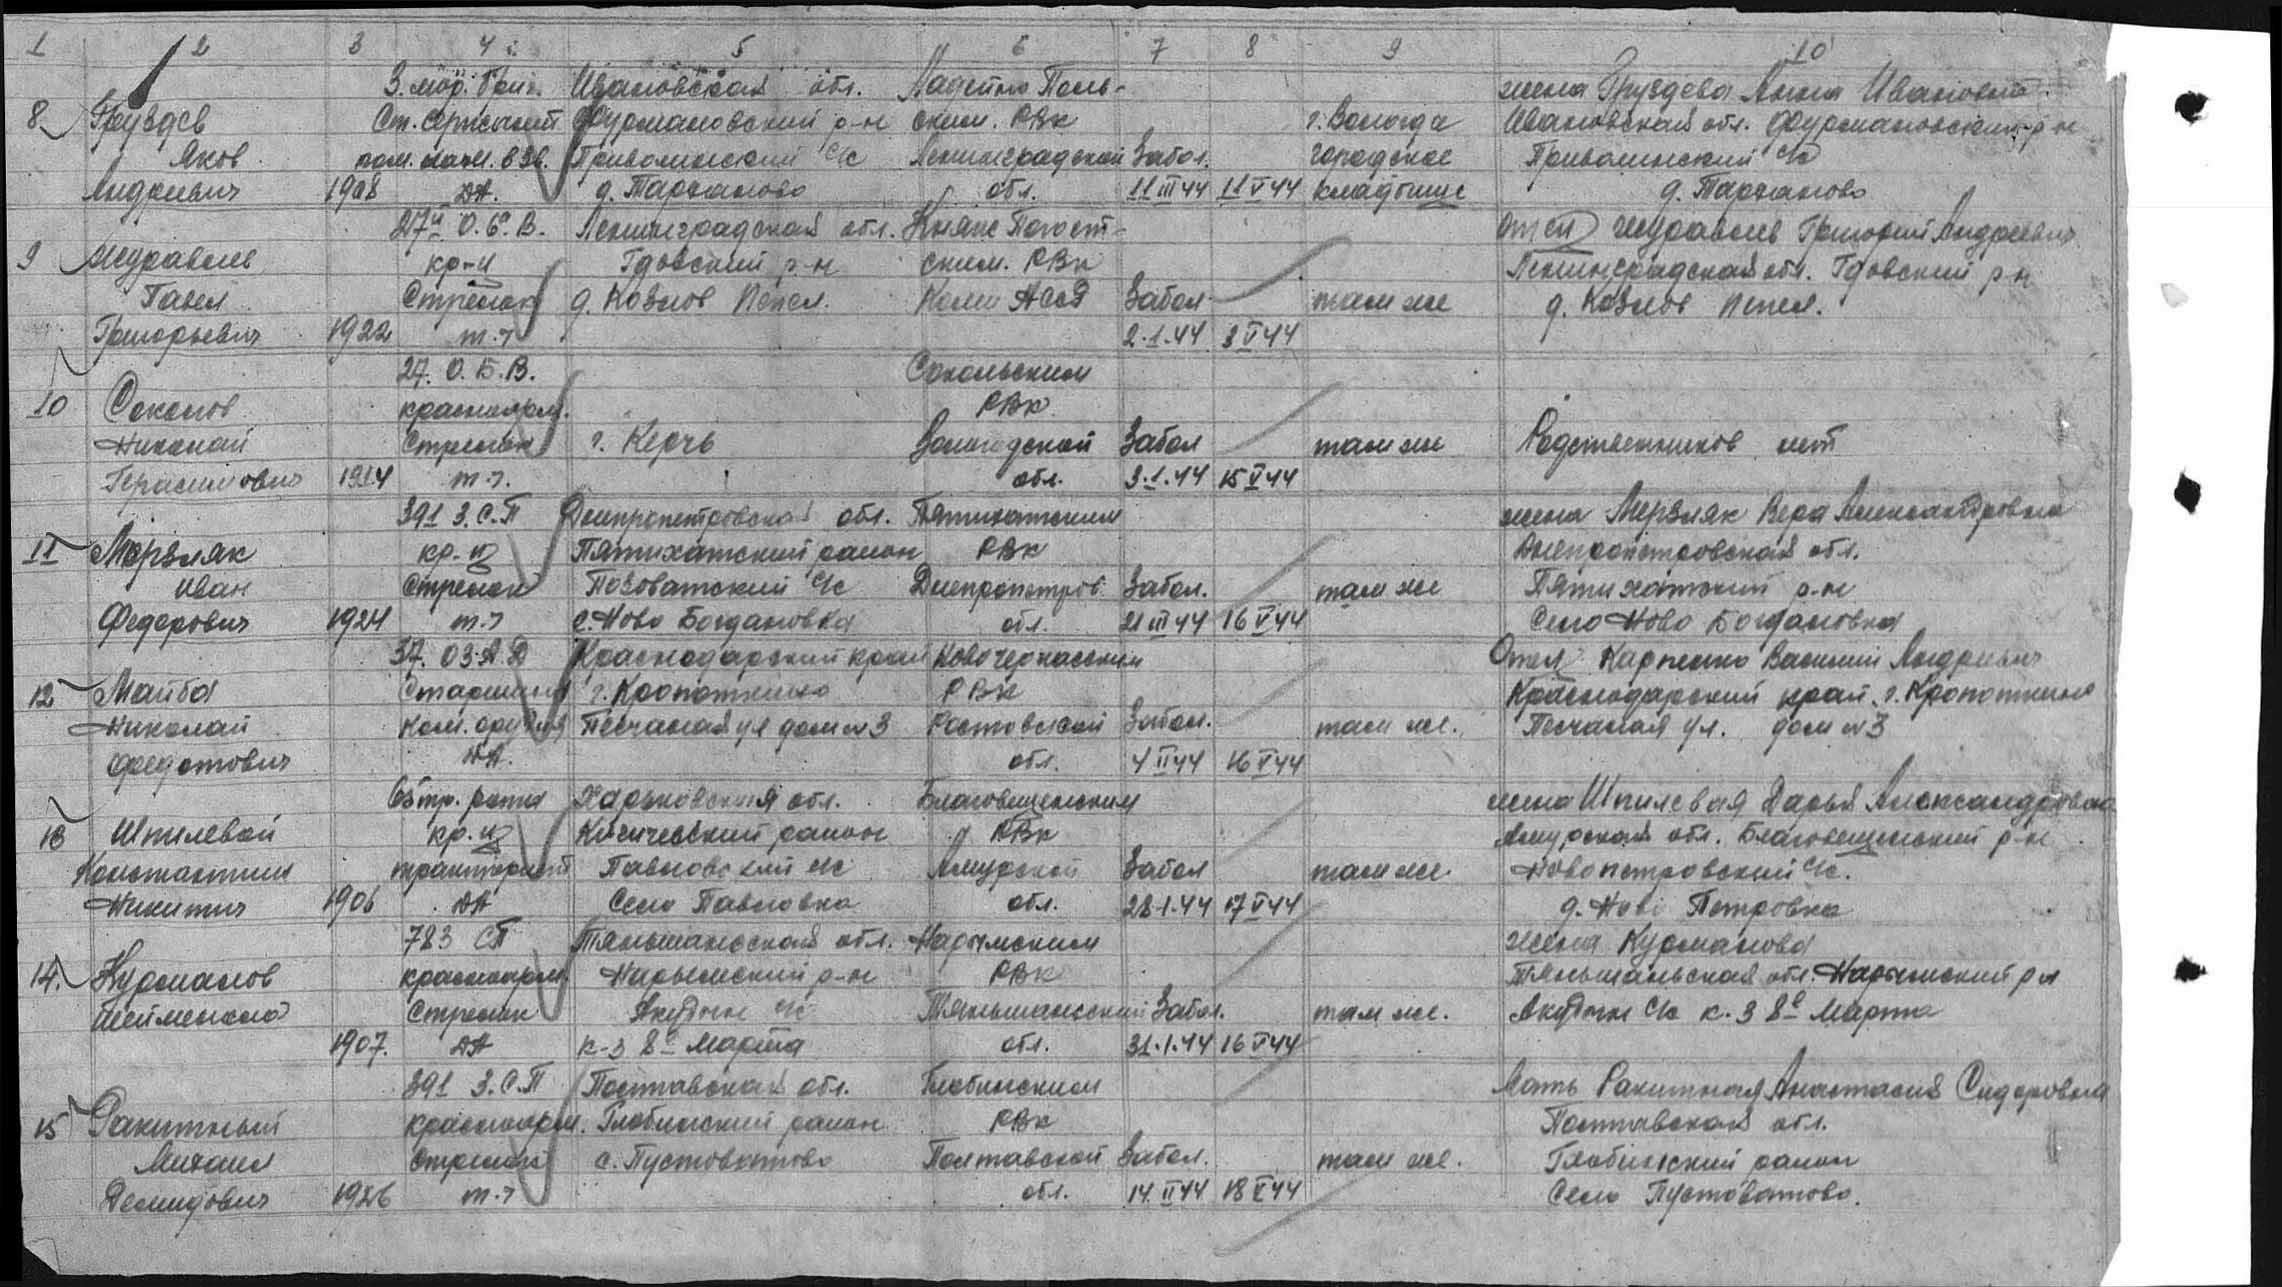 1 2 3 4 5 6 7 8 9 10
З. мор. бриг. Ивановская обл. Ладейно Поль- жена Груздева Анна Ивановна
8 Груздев Ст. сержант Фурмановский р-н ским. РВК г. Вологда Ивановская обл. Фурмановский р-н
Яков пом. нач. Приволжский с/с Ленинградской Забол. городское Приволжский с/с
Андреевич 1908 ДА. д. Тарханово обл. 11 III 44 11 V 44 кладбище д. Тарханово
27й О.б.В. Ленинградская обл. Княж Погост- Отец Журавлев Григорий Андреевич
9 Журавлев кр-ц Гдовский р-н ским. РВК Ленинградская обл. Гдовский р-н
Павел Стрелок д. Козлов Коми АССР Забол там же д. Козлов
Григорьевич 1922 т-з 2.1.44 3 V 44
27. О.Б.В. Сокольским
10 Соколов красноарм. РВК
Николай Стрелок г. Керчь Вологодской Забол там же Родственников нет
Герасимович 1914 т-з. обл. 3.1.44 15 V 44
391 З.С.П Днепропетровская обл. Пятихатским жена Мерзляк Вера Александровна
11 Мерзляк кр-ц Пятихатский район РВК Днепропетровская обл.
Иван Стрелок с/с Днепропетров. Забол. там же Пятихатский р-н
Федорович 1924 т-з с. Ново Богдановка обл. 21 III 44 16 V 44 Село Ново Богдановка
37. ОЗАД Краснодарский край Новочеркасским Отец Карпенко Василий Андреевич
12 Майба Старшина г. Кропоткино РВК Краснодарский край, г. Кропоткино
Николай Ком. орудия Песчаная ул дом №3 Ростовской Забол. там же. Песчаная ул. дом №3
Федотович ДА. обл. 4 II 44 16 V 44
рота Харьковская обл. Благовещенским жена Шпилевая Дарья Александровна
13 Шпилевой кр-ц район РВК Амурская обл. Благовещенский р-н
Константин тракторист Павловский с/с Амурской Забол там же. Новопетровский с/с.
Никитич 1906 ДА Село Павловка обл. 28.1.44 17 V 44 д. Ново Петровка
783 СП Тяньшанская обл. Нарымским жена Курманова
14. Курманов красноарм. Нарымский р-н РВК Тяньшаньская обл. Нарымский р-н
Стрелок с/с Тяньшанской Забол. там же. с/с к-з 8е Марта
1907. ДА к-з 8е Марта обл. 31.1.44 16 V 44
391 З.С.П Полтавская обл. Глобинским Мать Ракитная Анастасия Сидоровна
15 Ракитный красноарм. Глобинский район РВК Полтавская обл.
Михаил Стрелок с. Пустоватово Полтавской Забол. там же. Глобинский район
Демидович 1926 т-з обл. 14 II 44 18 V 44 Село Пустоватово.